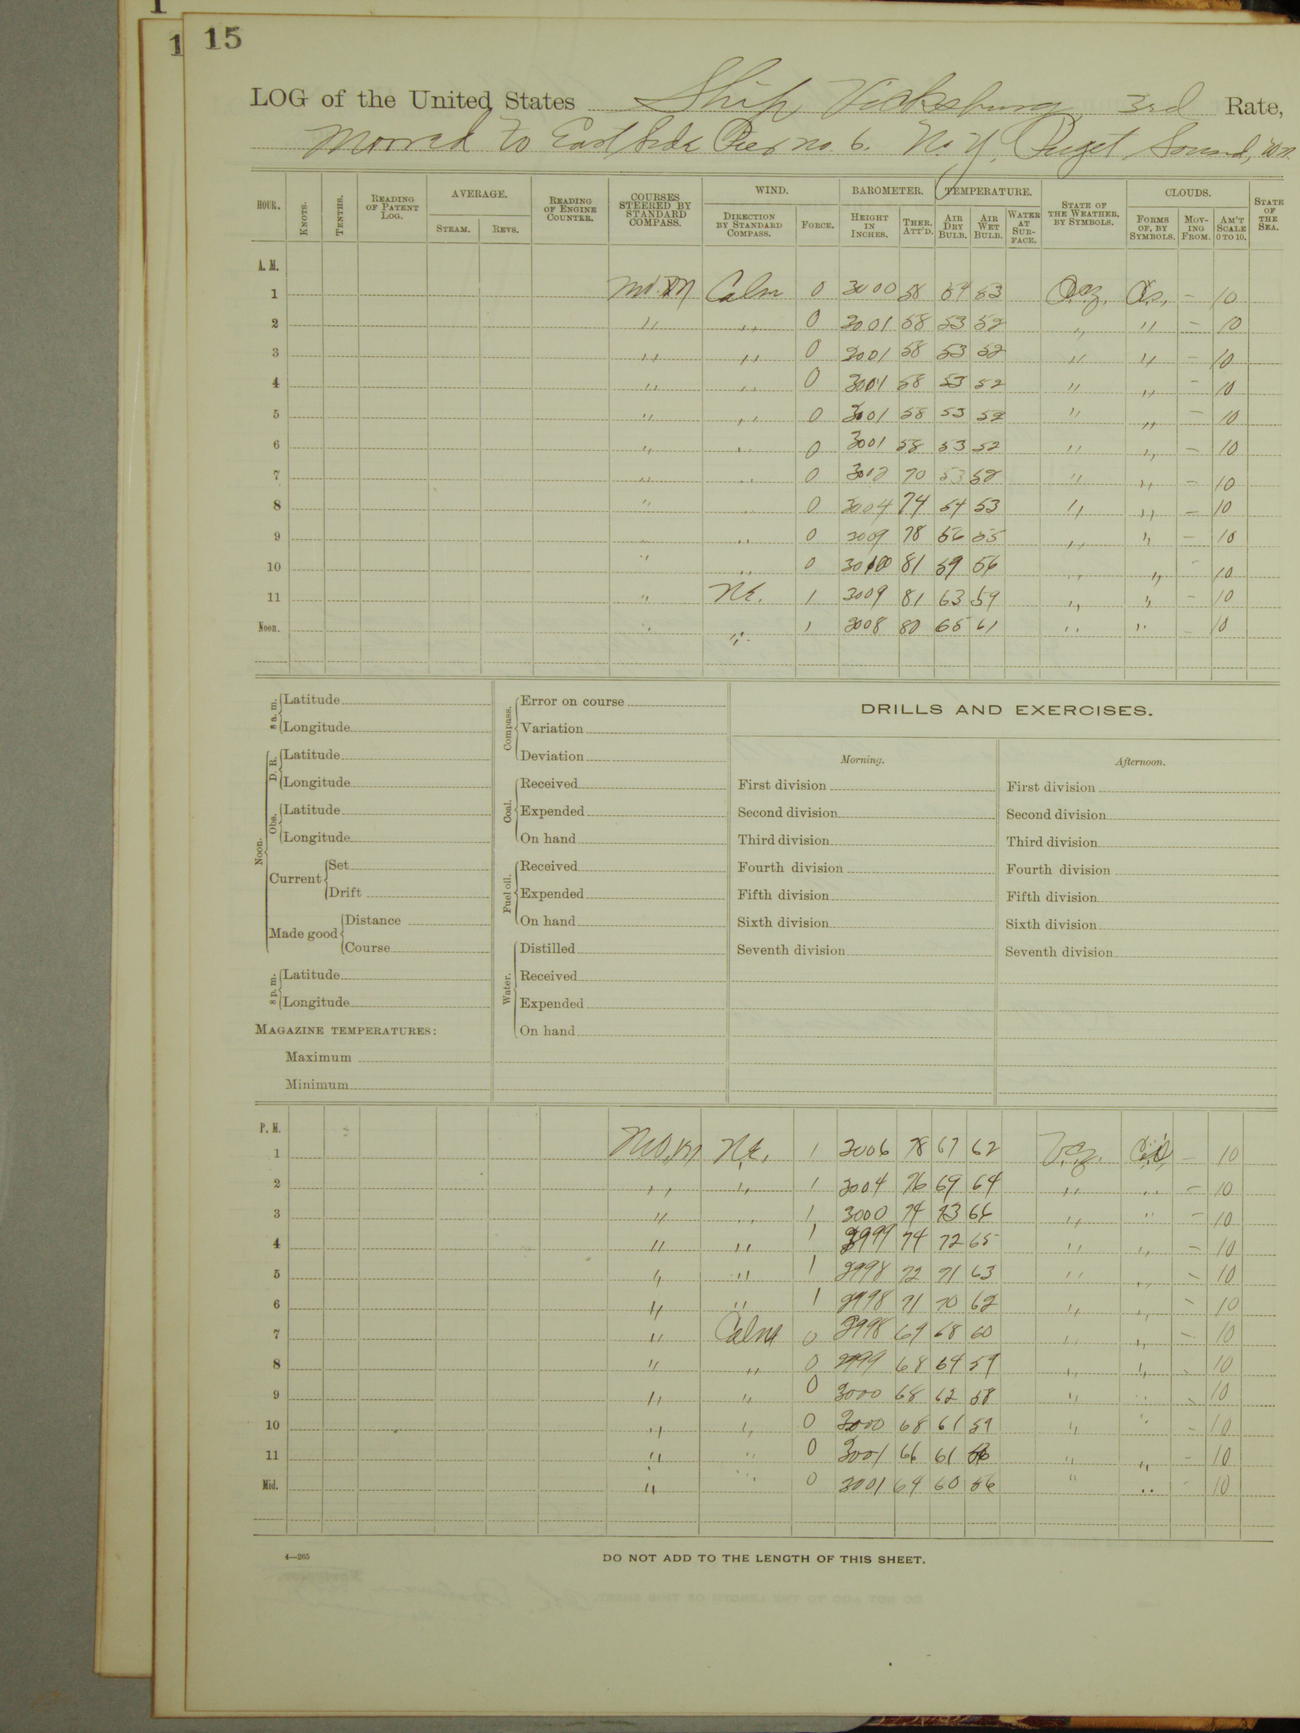 1
1
15
LOG of the United States Ship Vicksburg 3rd Rate,
Moored to East Side Pier no. 6. N. Y. Puget Sound, Wn.
HOUR. KNOTS. TENTHS. READING OF PATENT LOG. AVERAGE. STEAM. REVS. READING OF ENGINE COUNTER. COURSES STEERED BY STANDARD COMPASS. WIND. DIRECTION BY STANDARD COMPASS. FORCE. BAROMETER. HEIGHT IN INCHES. THER. ATT'D. TEMPERATURE. AIR DRY BULB. AIR WET BULB. WATER AT SURFACE. STATE OF THE WEATHER, BY SYMBOLS. CLOUDS. FORMS OF, BY SYMBOLS. MOVING FROM. AM'T SCALE 0 TO 10. STATE OF THE SEA.
A. M.
1 Calm 0 3000 58 54 53 – 10
2 " " 0 3001 58 53 52 " " – 10
3 " " 0 3001 58 53 52 " " – 10
4 " " 0 3001 58 53 52 " " – 10
5 " " 0 3001 58 53 52 " " – 10
6 " " 0 3001 58 53 52 " " – 10
7 " " 0 3002 70 53 52 " " – 10
8 " " 0 3004 74 54 53 " " – 10
9 " " 0 3009 78 56 55 " " – 10
10 " " 0 3010 81 59 56 " " – 10
11 " NE. 1 3009 81 63 59 " " – 10
Noon. " " 1 3008 80 65 61 " " – 10
8 a. m. Latitude
Longitude
Noon. D. R. Latitude
Longitude
Obs. Latitude
Longitude
Current Set
Drift
Made good Distance
Course
8 p. m. Latitude
Longitude
MAGAZINE TEMPERATURES:
Maximum
Minimum
Compass. Error on course
Variation
Deviation
Coal. Received
Expended
On hand
Fuel oil. Received
Expended
On hand
Water. Distilled
Received
Expended
On hand
DRILLS AND EXERCISES.
Morning. Afternoon.
First division First division
Second division Second division
Third division Third division
Fourth division Fourth division
Fifth division Fifth division
Sixth division Sixth division
Seventh division Seventh division
P. M.
1 NE. 1 3006 78 67 62 – 10
2 " " 1 3004 76 69 64 " " – 10
3 " " 1 3000 74 73 66 " " – 10
4 " " 1 2999 74 72 65 " " – 10
5 " " 1 2998 72 71 63 " " – 10
6 " " 1 2998 71 70 62 " " – 10
7 " Calm 0 2998 69 68 60 " " – 10
8 " " 0 2999 68 64 59 " " – 10
9 " " 0 3000 68 62 58 " " – 10
10 " " 0 3000 68 61 57 " " – 10
11 " " 0 3001 66 61 56 " " – 10
Mid. " " 0 3001 64 60 56 " " – 10
4—265 DO NOT ADD TO THE LENGTH OF THIS SHEET.